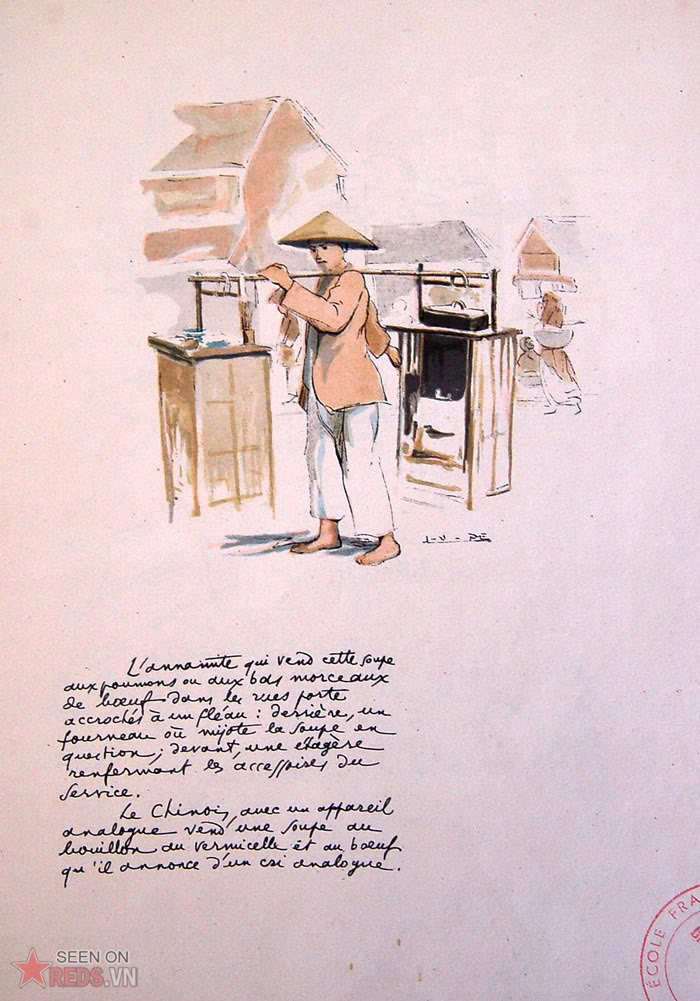 L-V-DE
L'annamite qui vend cette soupe
aux poumons ou aux bas morceaux
de bœuf dans les rues porte
accrochés à un fléau : derrière, un
fourneau où mijote la soupe en
question ; devant, une étagère
renfermant les accessoires du
service.
Le Chinois, avec un appareil
analogue vend une soupe au
bouillon au vermicelle et au bœuf
qu'il annonce d'un cri analogue.
ÉCOLE FRA
SEEN ON
REDS.VN